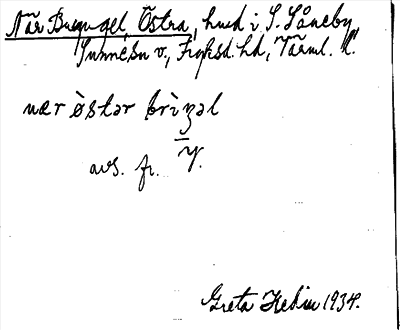 När Bregel, Östra, hmd i S. Såneby
Sunnesn v., Fryksd. hd, Värml. l.
nær ø̀stər brìzəl
avs. fr. y.
Greta Hedin 1934.